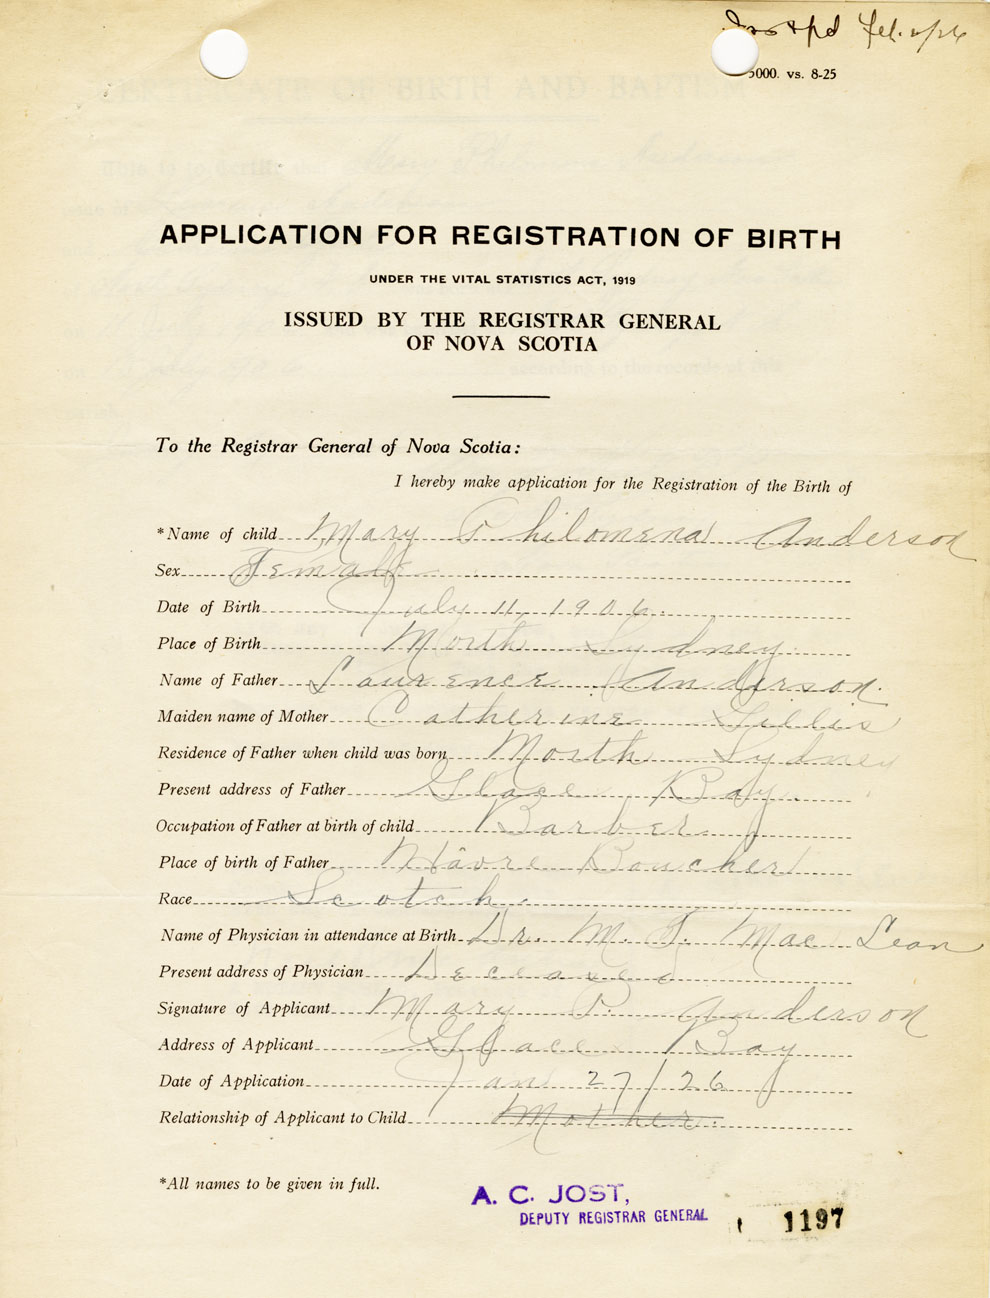 Feb. 2/26
5000. vs. 8-25
APPLICATION FOR REGISTRATION OF BIRTH
UNDER THE VITAL STATISTICS ACT, 1919
ISSUED BY THE REGISTRAR GENERAL
OF NOVA SCOTIA
To the Registrar General of Nova Scotia:
I hereby make application for the Registration of the Birth of
*Name of child Mary Philomena Anderson
Sex Female
Date of Birth July 11, 1906.
Place of Birth North Sydney.
Name of Father Laurence Anderson.
Maiden name of Mother Catherine Gillis
Residence of Father when child was born North Sydney
Present address of Father Glace Bay.
Occupation of Father at birth of child Barber
Place of birth of Father Havre Boucher
Race Scotch.
Name of Physician in attendance at Birth Dr. M. T. Mac Lean
Present address of Physician Deceased
Signature of Applicant Mary P. Anderson
Address of Applicant Glace Bay
Date of Application Jan 27/26
Relationship of Applicant to Child Mother.
*All names to be given in full.
A. C. JOST,
DEPUTY REGISTRAR GENERAL
1197